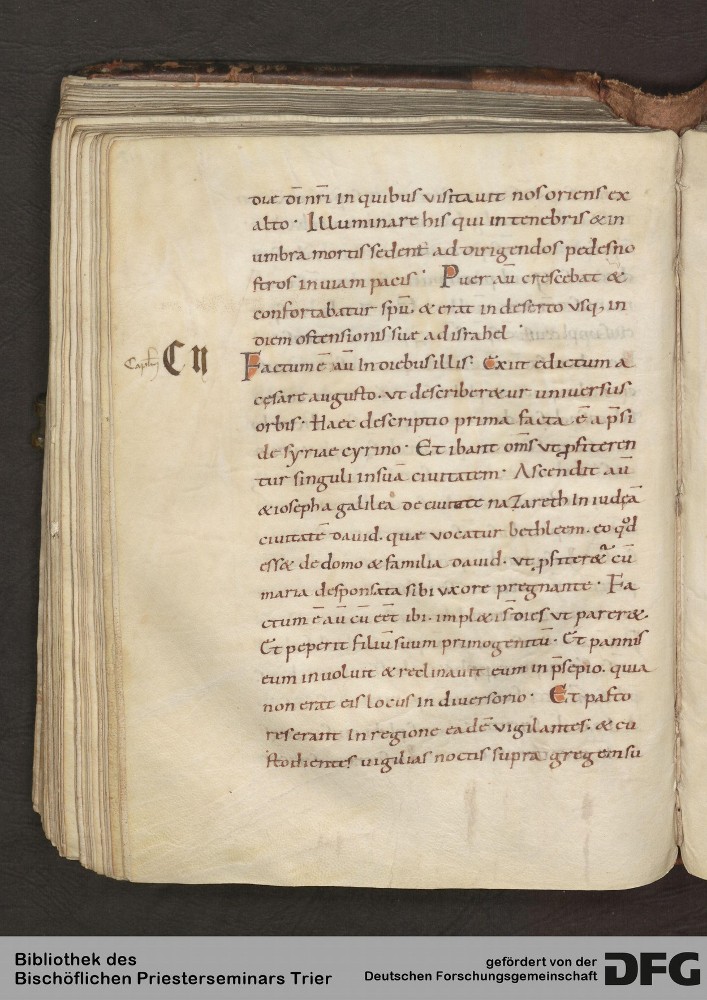 die dī nr̄i in quibus visitavit nos oriens ex
alto · Illuminare his qui in tenebris & in
umbra mortis sedent ad dirigendos pedes no
stros in viam pacis · Puer aū crescebat &
confortabatur spū · & erat in deserto usq; in
diem ostensionis sue ad israhel ·
Capitulū C ij
Factum ē aū In diebus illis · Exiit edictum a
cęsare augusto · ut describer&ur universus
orbis · Haec descriptio prima facta ē a p̄si
de syriae cyrino · Et ibant om̄s ut ꝓfiteren
tur singuli in suā civitatem · Ascendit aū
& ioseph a galilea de civitate naZareth In iudęā
civitatē david · quae vocatur bethleem · eo qd̄
ess& de domo & familia david · ut ꝓfiter&ur cū
maria desponsata sibi uxore pregnante · Fa
ctum ē aū cū eēt ibi · impl&i s̄ dies ut parer& ·
Et peperit filiū suum primogenitū · Et pannis
eum involvit & reclinavit eum in p̄sepio · quia
non erat eis locus in diversorio · Et pasto
res erant In regione eadē vigilantes · & cu
stodientes vigilias noctis supra gregem su
Bibliothek des
Bischöflichen Priesterseminars Trier
gefördert von der
Deutschen Forschungsgemeinschaft
DFG